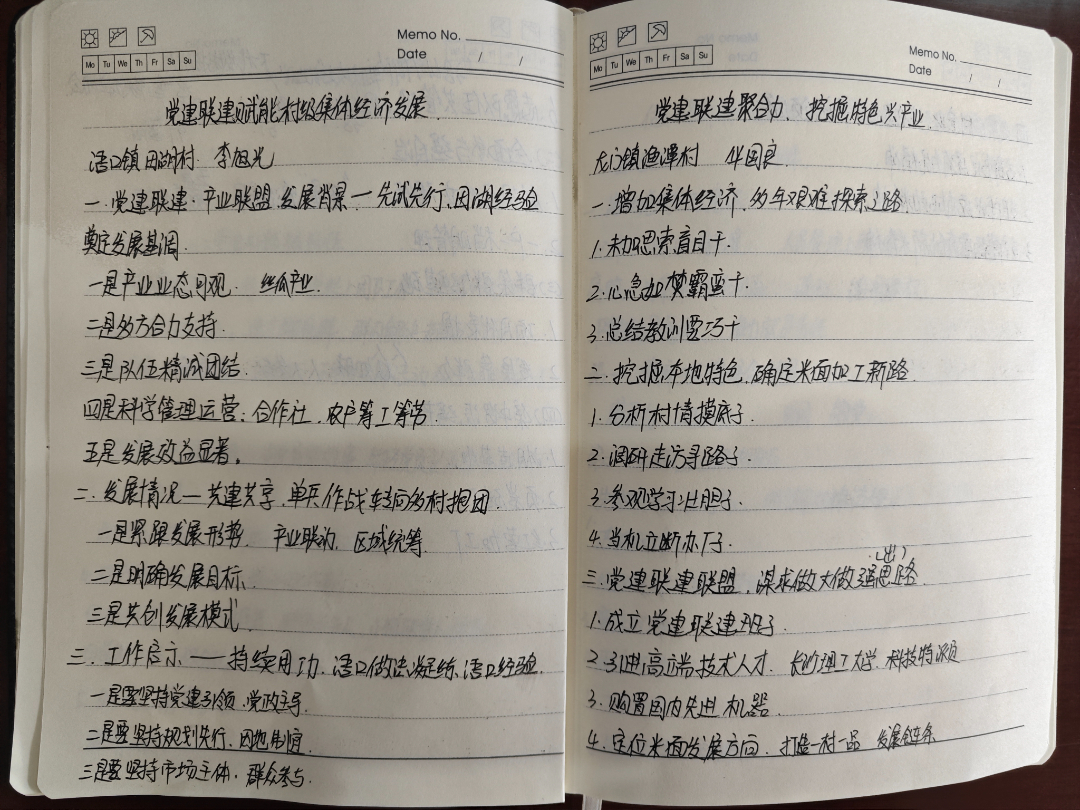 Memo No.
Mo Tu We Th Fr Sa Su
Date / /
党建联建赋能村级集体经济发展
浯口镇 田湖村 李旭光
一. 党建联建·产业联盟 发展背景一 先试先行、田湖经验
奠定发展基调
一是产业业态可观 丝瓜产业
二是多方合力支持
三是队伍精减团结
四是科学管理运营: 合作社、农户筹工筹劳
五是发展效益显著。
二、发展情况一 共建共享、单兵作战转向多村抱团
一是紧跟发展形势 产业联动、区域统筹
二是明确发展目标
三是共创发展模式
三、工作启示 —— 持续用功、浯口做法凝练、浯口经验
一是要坚持党建引领·党政主导
二是要坚持规划先行、因地制宜
三是要坚持市场主体·群众参与
Memo No.
Mo Tu We Th Fr Sa Su
Date / /
党建联建聚合力、挖掘特色兴产业
龙门镇渔潭村 华国良
一、增加集体经济、多年艰难探索之路
1. 未加思索盲目干
2. 心急如焚霸蛮干
3. 总结教训要巧干
二、挖掘本地特色、确定米面加工新路
1. 分析村情摸底子
2. 调研走访寻路子
3. 参观学习壮胆子
4. 当机立断办厂子
三、党建联建联盟、谋求做大做强出思路
1. 成立党建联建班子
2. 引进高端技术人才 长沙理工大学 科技特派员
3. 购置国内先进机器
4. 定位米面发展方向、打造一村一品 发展链条